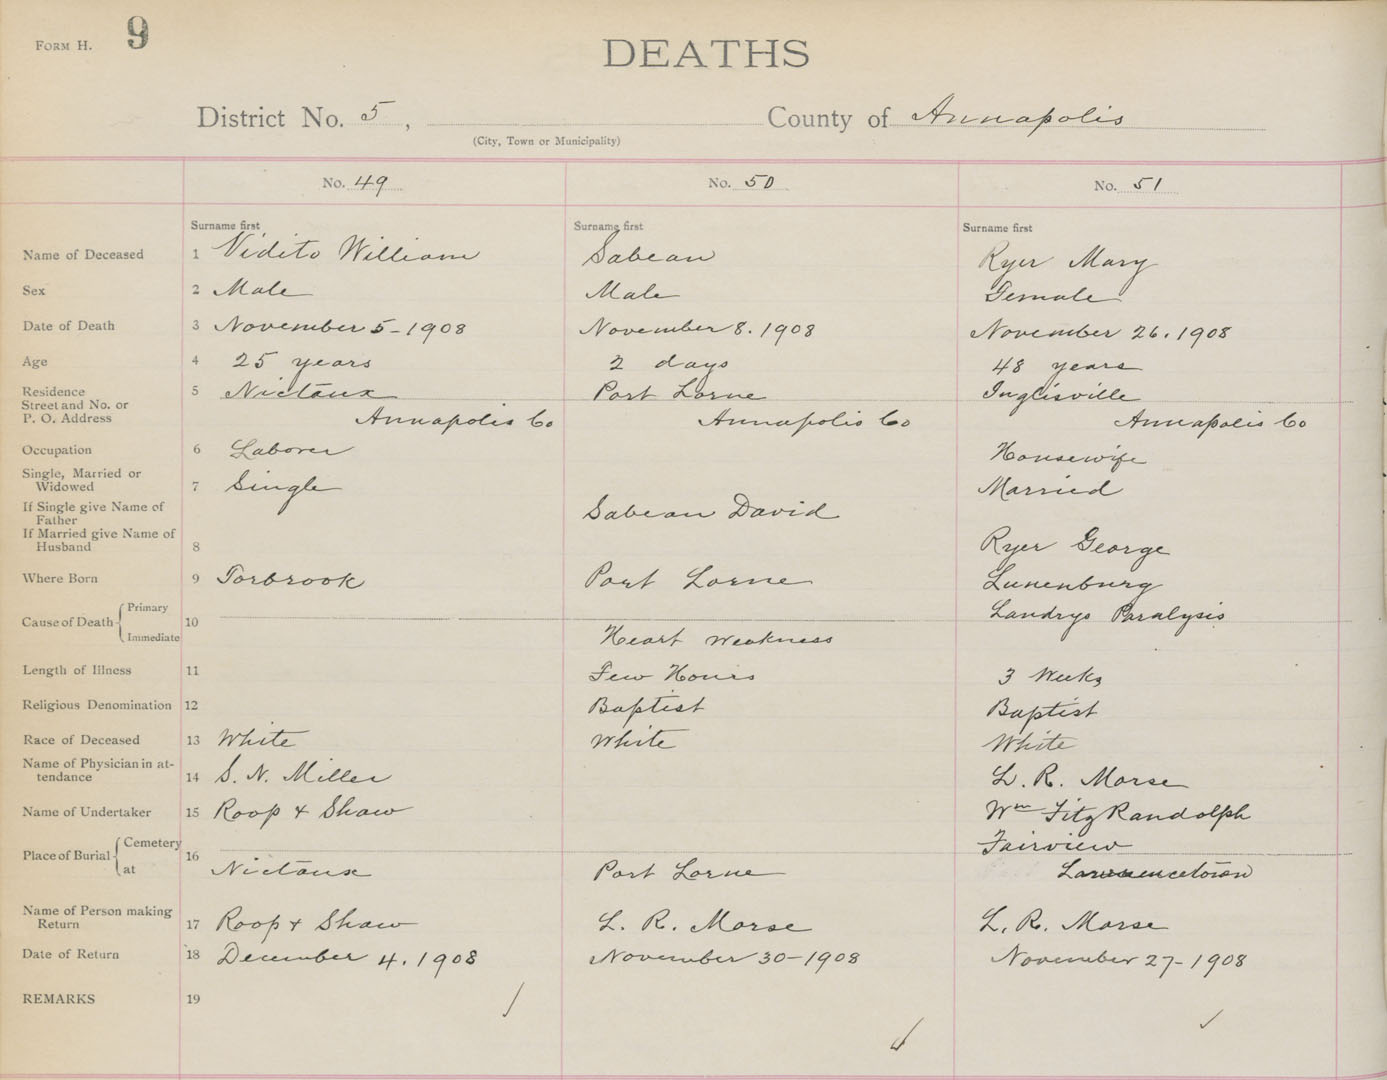 FORM H. 9
DEATHS
District No. 5, County of Annapolis
(City, Town or Municipality)
No. 49 No. 50 No. 51
Surname first Surname first Surname first
Name of Deceased 1 Vidito William Sabean Ryer Mary
Sex 2 Male Male Female
Date of Death 3 November 5-1908 November 8. 1908 November 26. 1908
Age 4 25 years 2 days 48 years
Residence 5 Nictaux Port Lorne Inglisville
Street and No. or
P. O. Address Annapolis Co Annapolis Co Annapolis Co
Occupation 6 Laborer Housewife
Single, Married or
Widowed 7 Single Married
If Single give Name of
Father Sabean David
If Married give Name of
Husband 8 Ryer George
Where Born 9 Torbrook Port Lorne Lunenburg
Cause of Death Primary 10 Landrys Paralysis
Immediate Heart Weakness
Length of Illness 11 Few Hours 3 Weeks
Religious Denomination 12 Baptist Baptist
Race of Deceased 13 White White White
Name of Physician in at-
tendance 14 S. N. Miller L. R. Morse
Name of Undertaker 15 Roop & Shaw Wm FitzRandolph
Place of Burial Cemetery 16 Fairview
at Nictaux Port Lorne Lawrencetown
Name of Person making
Return 17 Roop & Shaw L. R. Morse L. R. Morse
Date of Return 18 December 4. 1908 November 30-1908 November 27-1908
REMARKS 19